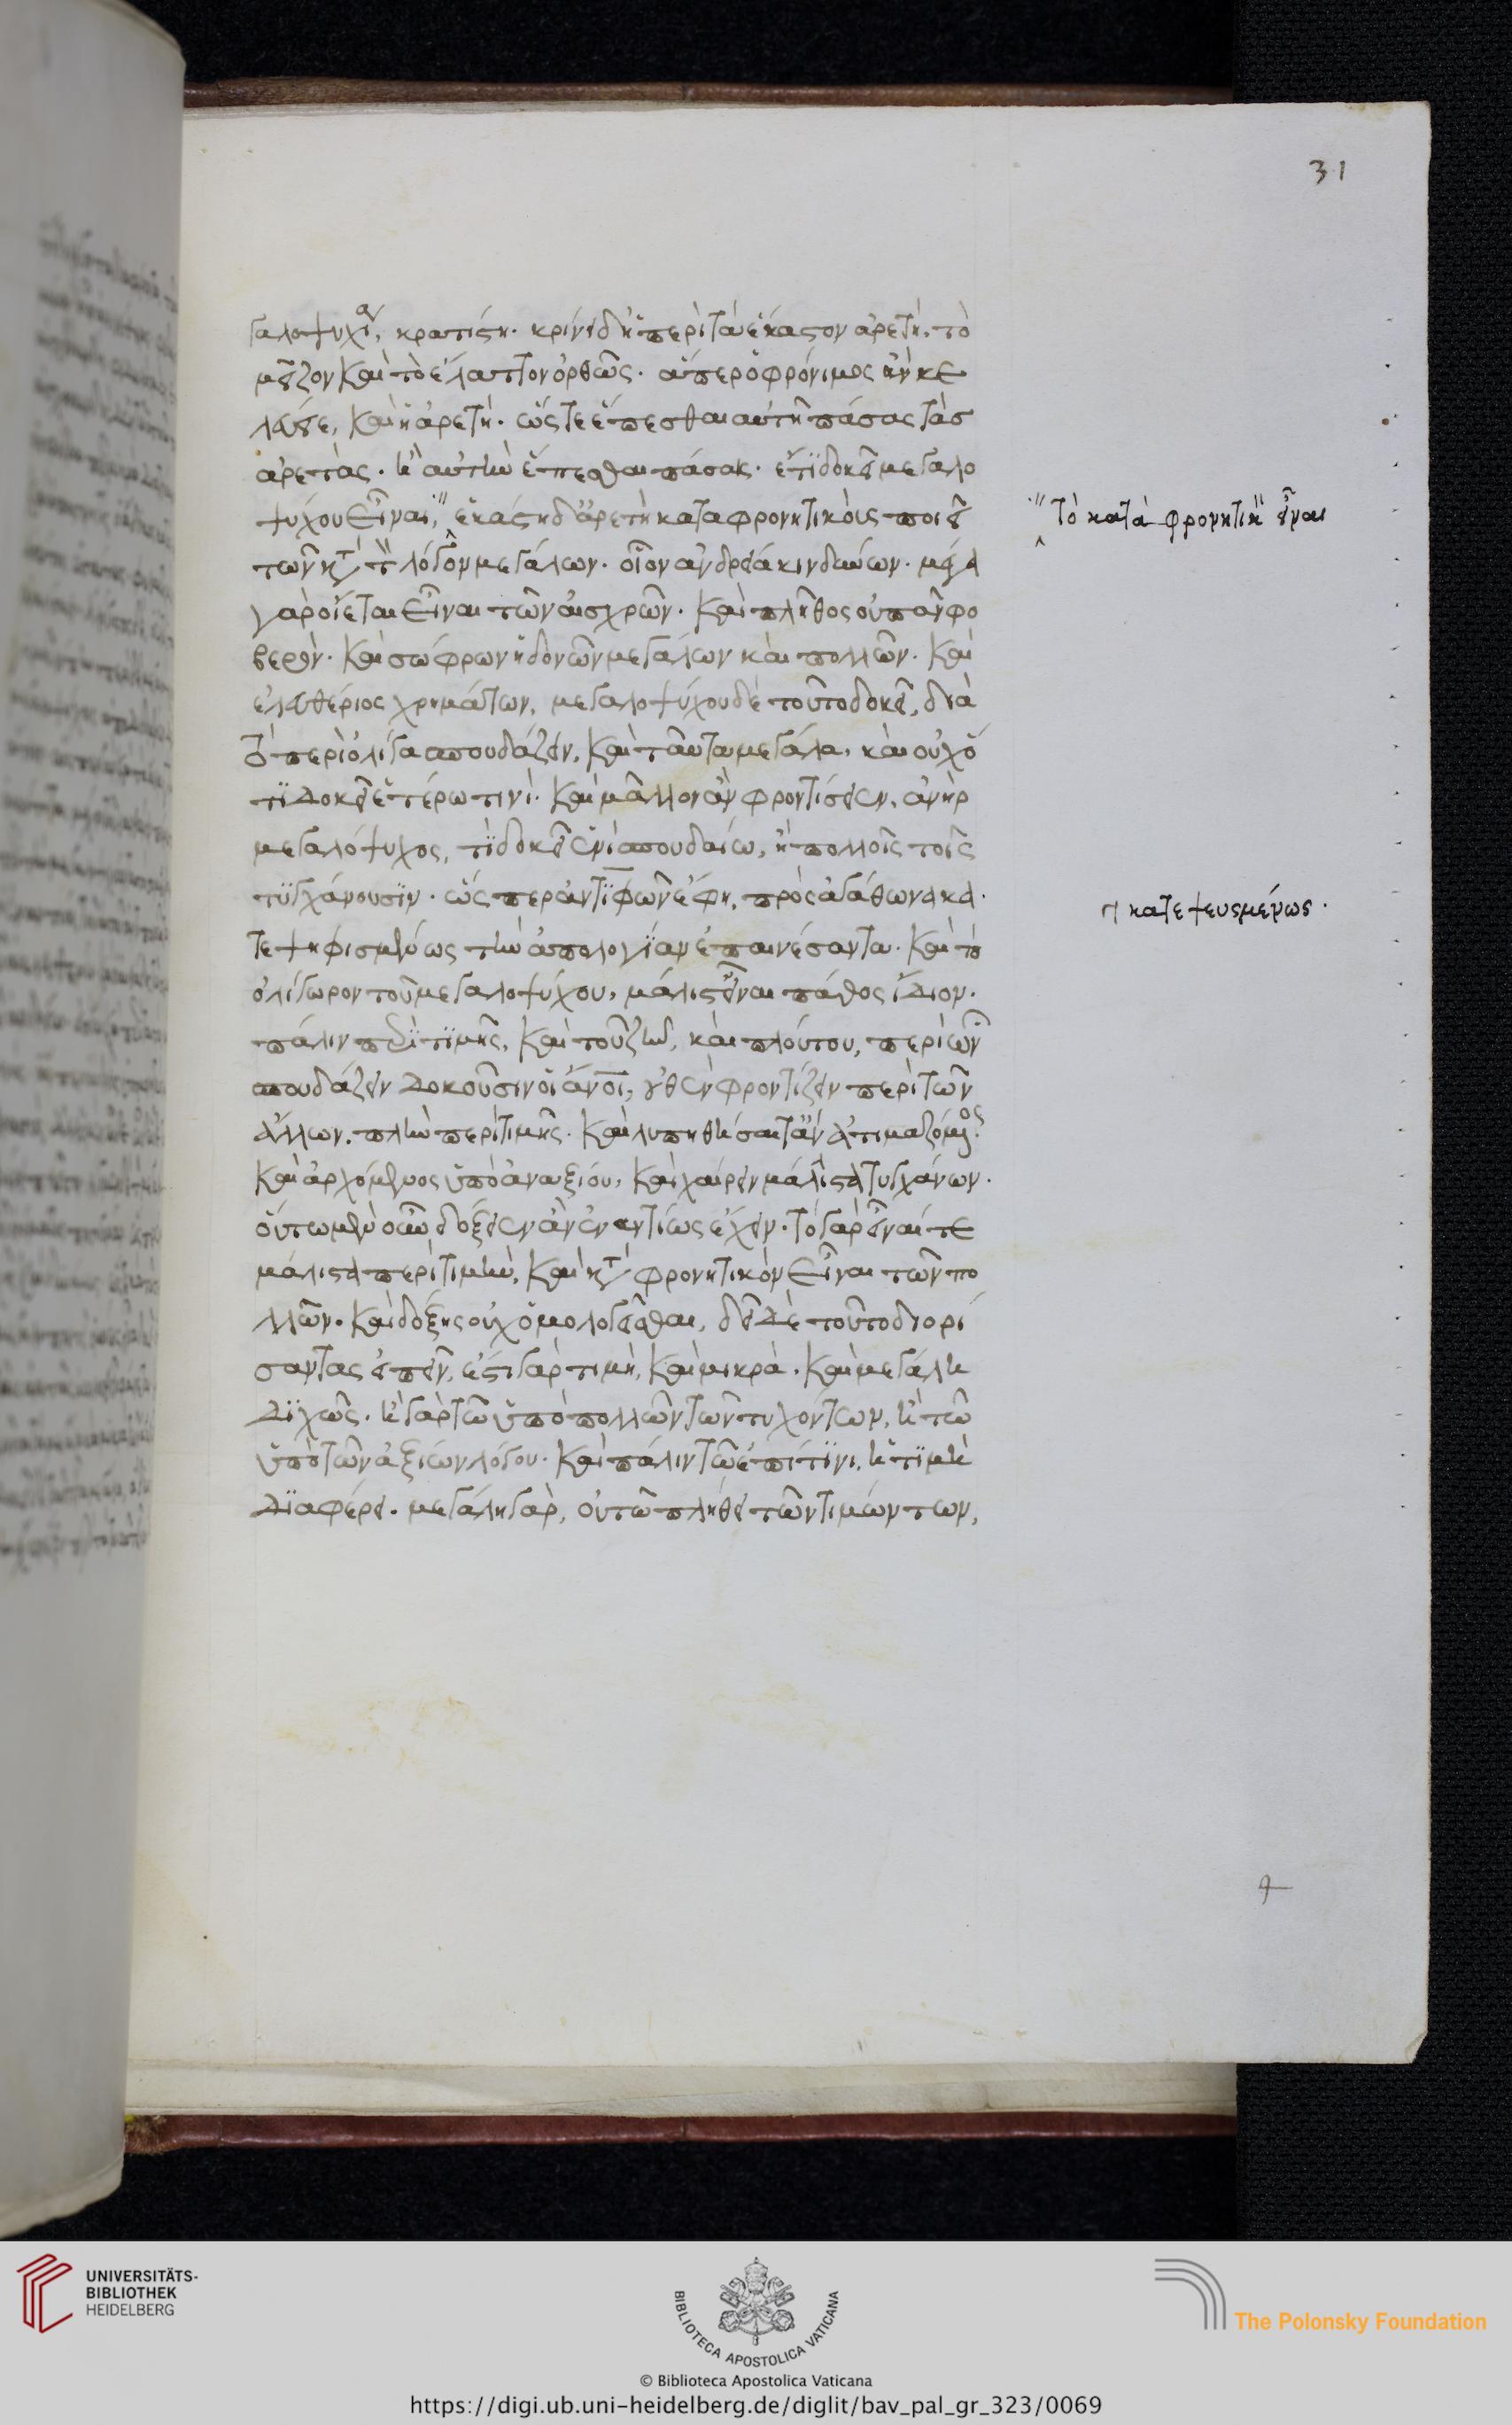 31
γαλοψυχίαν, κρατίστη. κρίνει δ' ἡ περὶ τὰ ἕκαστον ἀρετὴ. τὸ
μεῖζον καὶ τὸ ἔλαττον ὀρθῶς. ἅπερ ὁ φρόνιμος ἂν κε
λεύσειε, καὶ ἡ ἀρετή. ὥστε ἕπεσθαι αὐτῆ πάσας τὰς
ἀρετὰς. ἢ αὐτὴν ἕπεσθαι πάσαις. ἔτι δοκεῖ μεγαλο
ψύχου εἶναι, ἑκάστη δ' ἀρετὴ καταφρονητικοὺς ποιεῖ
τῶν λόγον μεγάλων. οἷον ἀνδρεία κινδύνων. μέγα
γὰρ οἴεται εἶναι τῶν αἰσχρῶν. καὶ πλῆθος οὐ πᾶν φο
βερόν. καὶ σώφρων ἡδονῶν μεγάλων καὶ πολλῶν. καὶ
ἐλευθέριος χρημάτων, μεγαλοψύχου δὲ τοῦτο δοκεῖ, διὰ
τὸ περὶ ὀλίγα σπουδάζειν, καὶ ταῦτα μεγάλα, καὶ οὐχ ὅ
τι δοκεῖ ἑτέρω τινί. καὶ μᾶλλον ἂν φροντίσειεν, ἀνὴρ
μεγαλόψυχος, τί δοκεῖ ἑνὶ σπουδαίω, ἢ πολλοῖς τοῖς
τυγχάνουσιν. ὥσπερ ἀντιφῶν ἔφη, πρὸς ἀγάθωνα κα
τεψηφισμένως τὴν ἀπολογίαν ἐπαινέσαντα. καὶ τὸ
ὀλίγωρον τοῦ μεγαλοψύχου, μάλιστ' εἶναι πάθος ἴδιον.
πάλιν περὶ τιμῆς, καὶ τοῦ ζῆν, καὶ πλούτου, περὶ ὧν
σπουδάζειν δοκοῦσιν οἱ ἄνοι, οὐθὲν φροντίζειν περὶ τῶν
ἄλλων. πλὴν περὶ τιμῆς. καὶ λυπηθήσαιτ' ἂν ἀτιμαζόμενος
καὶ ἀρχόμενος ὑπὸ ἀναξίου, καὶ χαίρειν μάλιστα τυγχάνων.
οὕτω μὲν οὖν δόξειεν ἂν ἐναντίως ἔχειν. τὸ γὰρ εἶναί τε
μάλιστα περὶ τιμὴν, καὶ καταφρονητικὸν εἶναι τῶν πο
λλῶν. καὶ δόξης οὐχ ὁμολογεῖσθαι, δεῖ δὲ τοῦτο διορί
σαντας εἰπεῖν, ἔστι γὰρ τιμὴ, καὶ μικρὰ. καὶ μεγάλη
διχῶς. ἢ γὰρ τῶ ὑπὸ πολλῶν τῶν τυχόντων, ἢ τῶ
ὑπὸ τῶν ἀξίων λόγου. καὶ πάλιν τῶ ἐπὶ τίνι, ἡ τιμὴ
διαφέρει. μεγάλη γὰρ, οὐ τῶ πλήθει τῶν τιμώντων,
τὸ καταφρονητικὸν εἶναι
κατεψευσμένως.
UNIVERSITÄTS-
BIBLIOTHEK
HEIDELBERG
BIBLIOTECA APOSTOLICA VATICANA
The Polonsky Foundation
© Biblioteca Apostolica Vaticana
https://digi.ub.uni-heidelberg.de/diglit/bav_pal_gr_323/0069